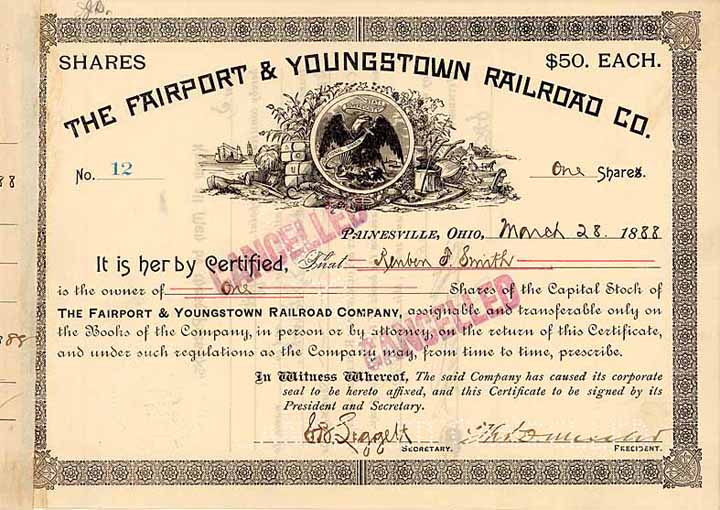 SHARES
$50. EACH.
THE FAIRPORT & YOUNGSTOWN RAILROAD CO.
No. 12
One Shares.
PAINESVILLE, OHIO, March 28. 1888
CANCELLED
It is herby Certified, That Reuben F. Smith
is the owner of One Shares of the Capital Stock of
THE FAIRPORT & YOUNGSTOWN RAILROAD COMPANY, assignable and transferable only on
the Books of the Company, in person or by attorney, on the return of this Certificate,
and under such regulations as the Company may, from time to time, prescribe.
CANCELLED
In Witness Whereof, The said Company has caused its corporate
seal to be hereto affixed, and this Certificate to be signed by its
President and Secretary.
Leggett
SECRETARY.
PRECIDENT.
88